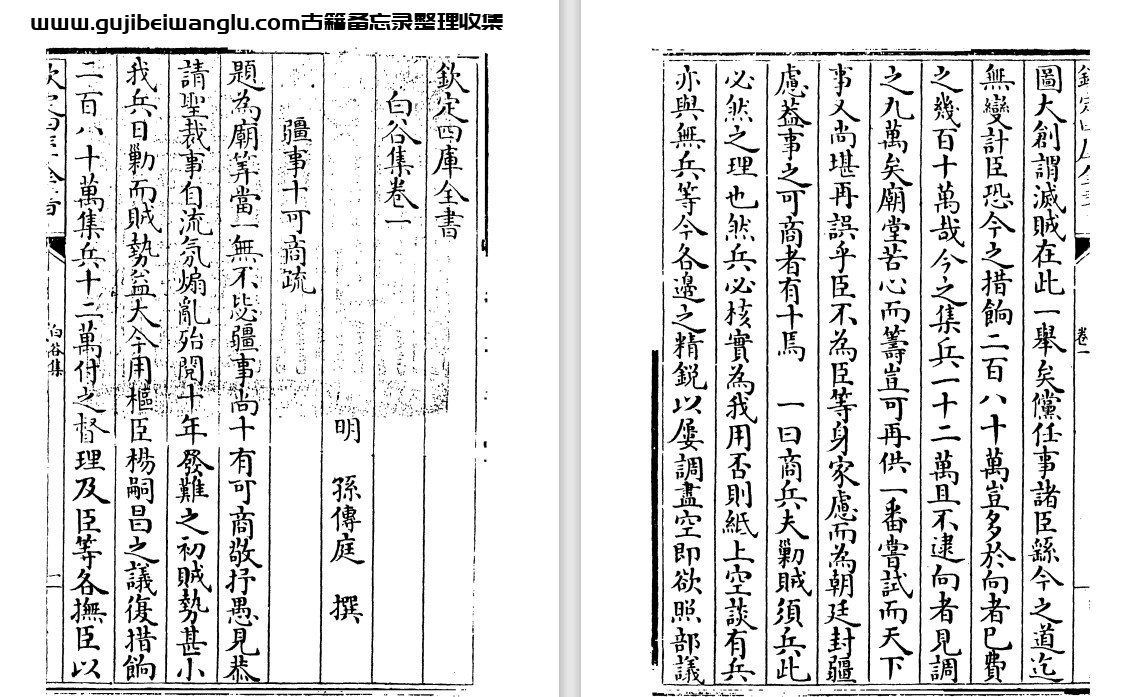 www.gujibeiwanglu.com古籍备忘录整理收集
欽定四庫全書
白谷集卷一
明 孫傳庭 撰
疆事十可商疏
題為廟筭當一無不毖疆事尚十有可商敬抒愚見恭
請聖裁事自流氛煽亂殆閱十年發難之初賊勢甚小
我兵日勦而賊勢益大今用樞臣楊嗣昌之議復措餉
二百八十萬集兵十二萬付之督理及臣等各撫臣以
欽定四庫全書
白谷集
一
卷一
圖大創謂滅賊在此一舉矣儻任事諸臣繇今之道迄
無變計臣恐今之措餉二百八十萬豈多於向者已費
之幾百十萬哉今之集兵一十二萬且不逮向者見調
之九萬矣廟堂苦心而籌豈可再供一番嘗試而天下
事又尚堪再誤乎臣不為臣等身家慮而為朝廷封疆
慮葢事之可商者有十焉 一曰商兵夫勦賊須兵此
必然之理也然兵必核實為我用否則紙上空談有兵
亦與無兵等今各邊之精銳以屢調盡空即欲照部議